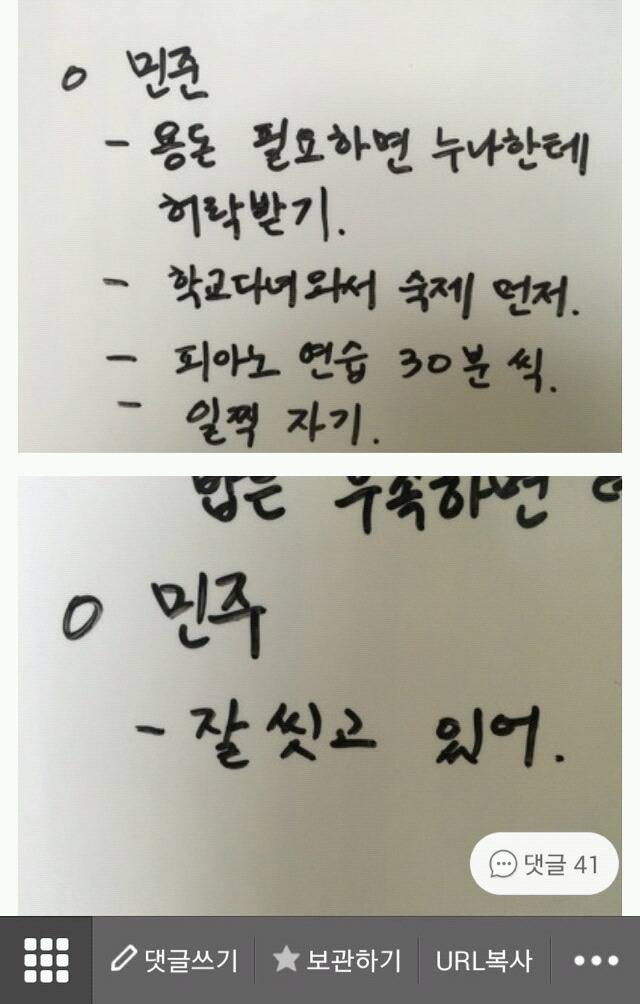 o 민준
- 용돈 필요하면 누나한테
허락받기.
- 학교다녀와서 숙제 먼저.
- 피아노 연습 30분 씩.
- 일찍 자기.
밥은 부족하면
o 민주
- 잘 씻고 있어.
댓글 41
댓글쓰기 보관하기 URL복사